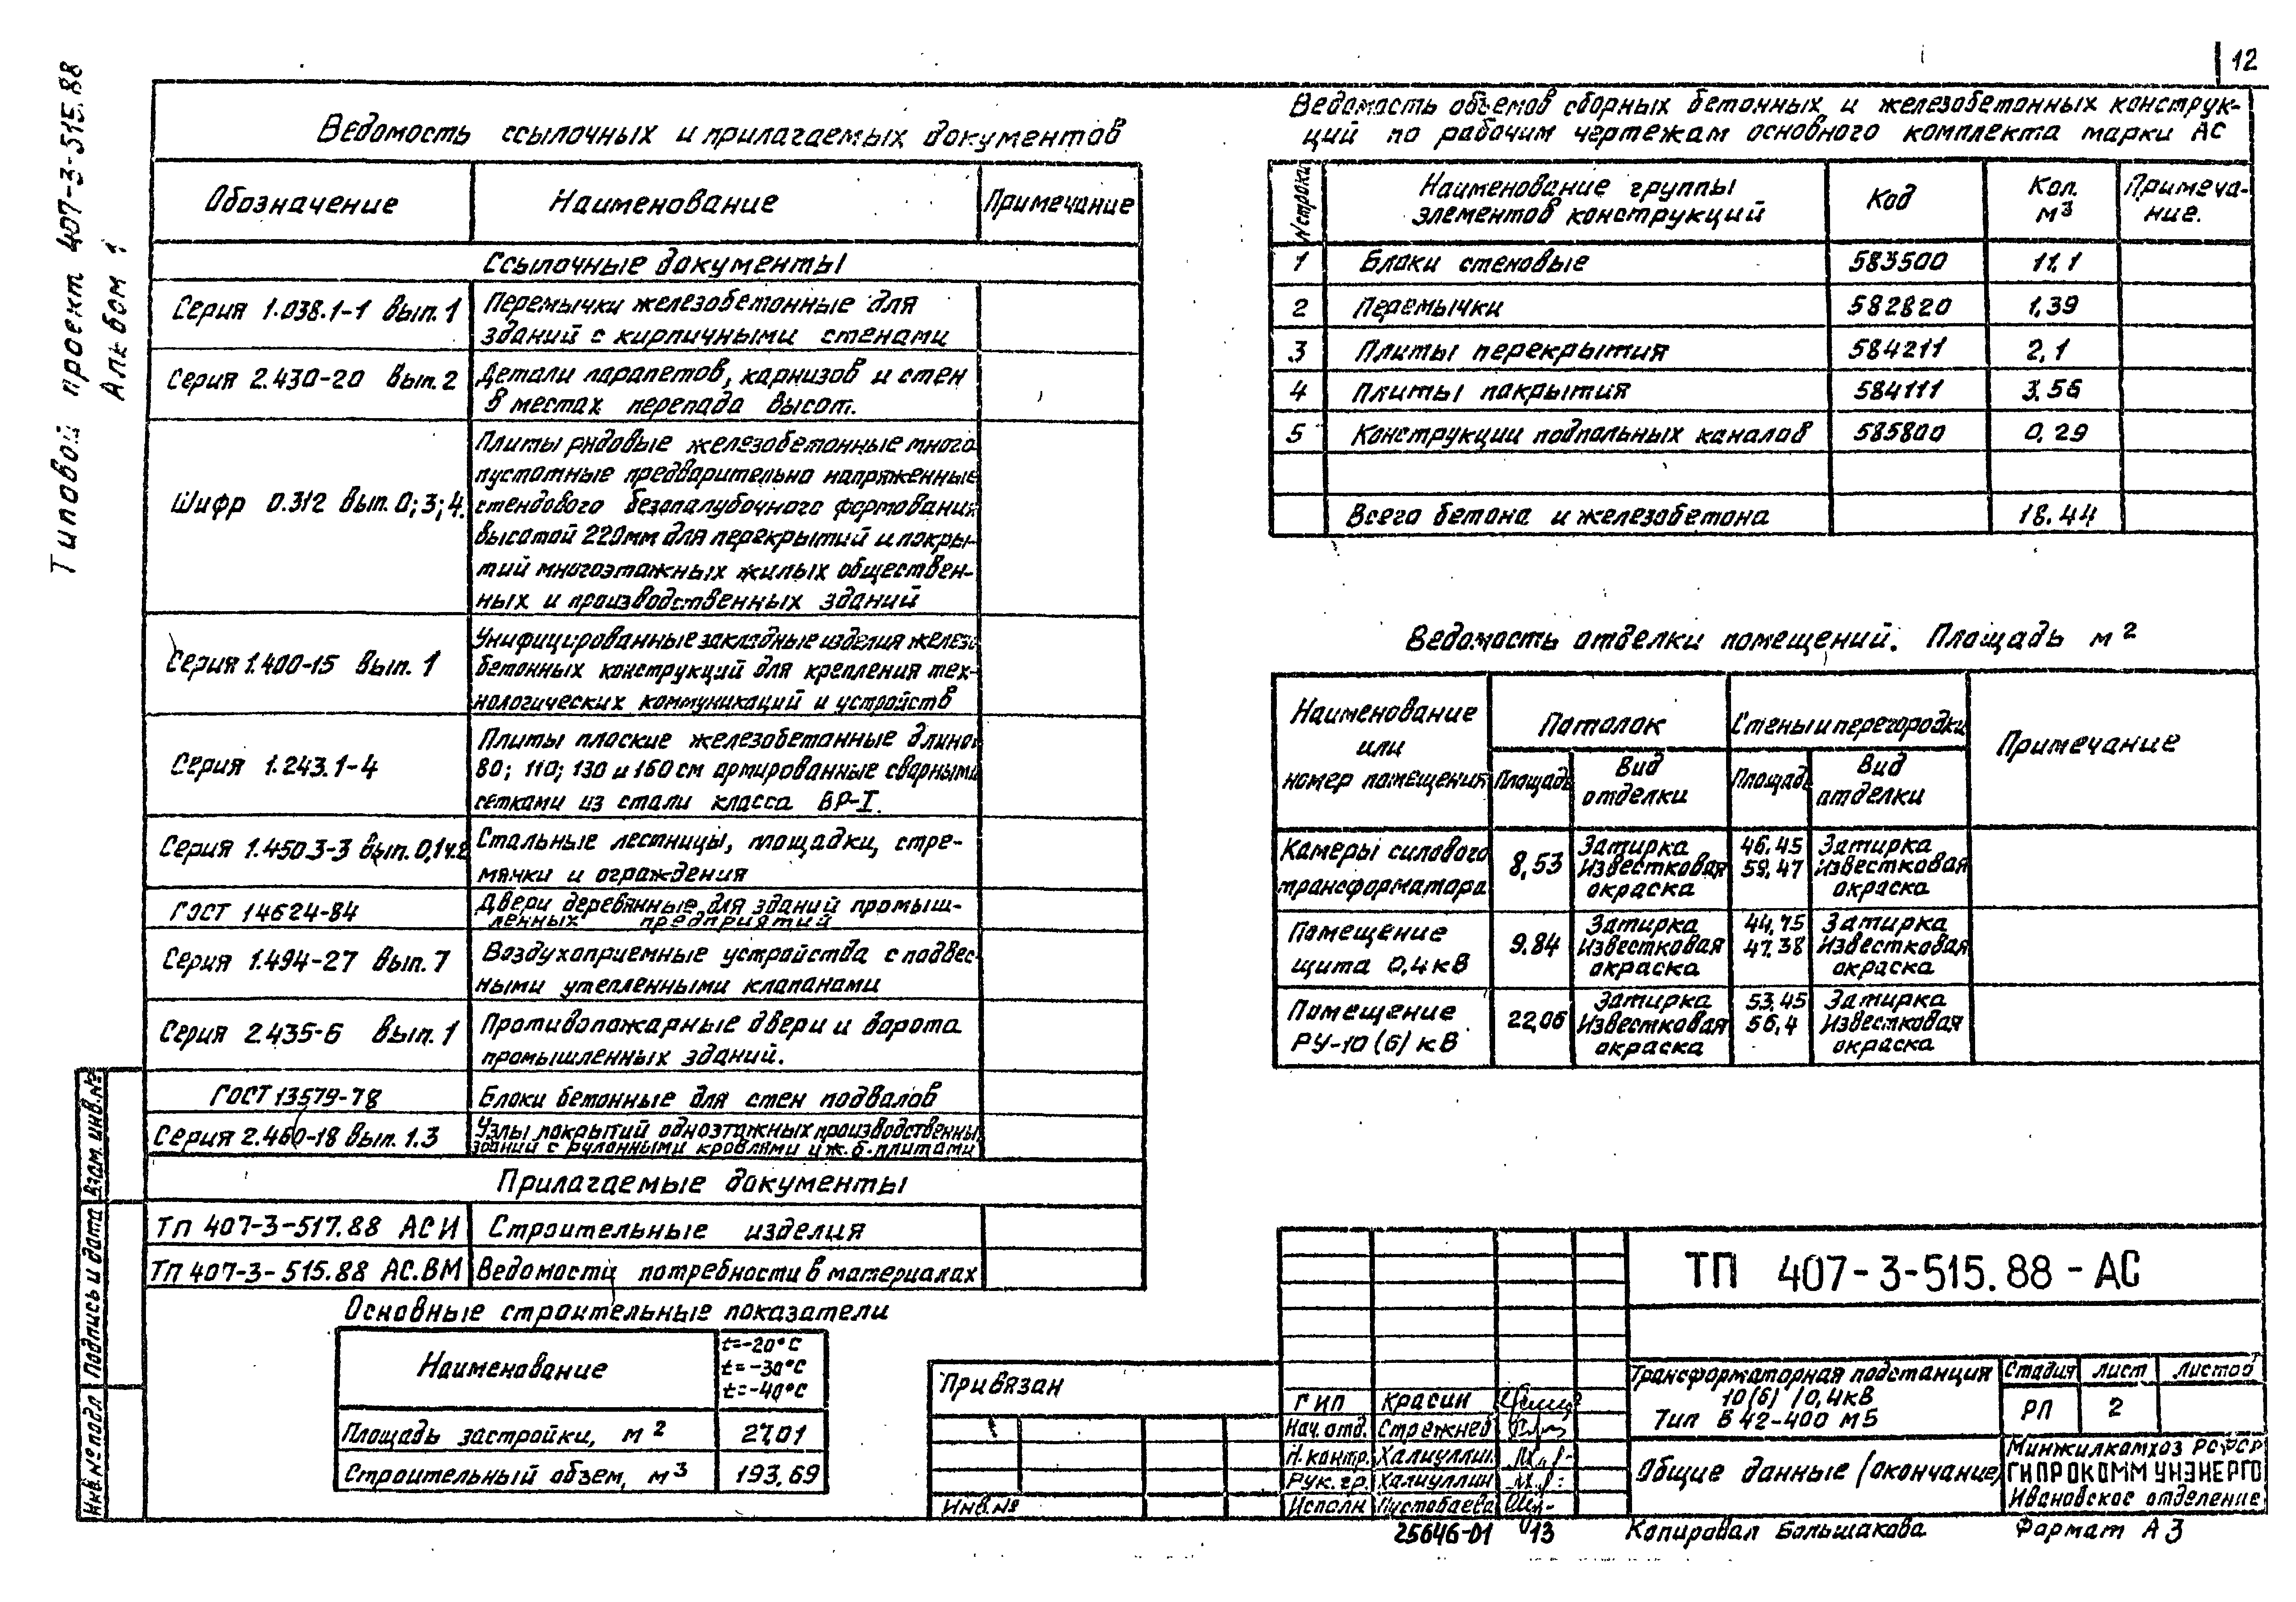 12
Типовой проект 407-3-515.88
Альбом 1
Ведомость ссылочных и прилагаемых документов
Обозначение Наименование Примечание
Ссылочные документы
Серия 1.038.1-1 вып. 1 Перемычки железобетонные для
зданий с кирпичными стенами
Серия 2.430-20 вып. 2 Детали парапетов, карнизов и стен
в местах перепада высот.
Шифр 0.312 вып. 0; 3; 4. Плиты рядовые железобетонные много
пустотные предварительно напряженные
стендового безопалубочного формования
высотой 220мм для перекрытий и покры-
тий многоэтажных жилых обществен-
ных и производственных зданий
Серия 1.400-15 вып. 1 Унифицированные закладные изделия железо
бетонных конструкций для крепления тех-
нологических коммуникаций и устройств
Серия 1.243.1-4 Плиты плоские железобетонные длиной
80; 110; 130 и 160 см армированные сварными
сетками из стали класса ВР-I.
Серия 1.450.3-3 вып. 0,1ч.2 Стальные лестницы, площадки, стре-
мянки и ограждения
ГОСТ 14624-84 Двери деревянные для зданий промыш-
ленных предприятий
Серия 1.494-27 вып. 7 Воздухоприемные устройства с подвес-
ными утепленными клапанами
Серия 2.435-6 вып. 1 Противопожарные двери и ворота
промышленных зданий.
ГОСТ 13579-78 Блоки бетонные для стен подвалов
Серия 2.460-18 вып. 1.3 Узлы покрытий одноэтажных производственных
зданий с рулонными кровлями и ж.б.плитами
Прилагаемые документы
ТП 407-3-517.88 АСИ Строительные изделия
ТП 407-3-515.88 АС.ВМ Ведомости потребности в материалах
Основные строительные показатели
Наименование t=-20°С
t=-30°С
t=-40°С
Площадь застройки, м2 27,01
Строительный объем, м3 193,69
Ведомость объемов сборных бетонных и железобетонных конструк-
ций по рабочим чертежам основного комплекта марки АС
N строки Наименование группы
элементов конструкций Код Кол.
м3 Примеча-
ние.
1 Блоки стеновые 583500 11,1
2 Перемычки 582820 1,39
3 Плиты перекрытия 584211 2,1
4 Плиты покрытия 584111 3.56
5 Конструкции подпольных каналов 585800 0,29
Всего бетона и железобетона 18.44
Ведомость отделки помещений. Площадь м2
Наименование
или
номер помещения Потолок Стены и перегородки Примечание
Площадь Вид
отделки Площадь Вид
отделки
Камеры силового
трансформатора 8,53 Затирка
Известковая
окраска 46.45
59.47 Затирка
Известковая
окраска
Помещение
щита 0,4кВ 9.84 Затирка
Известковая
окраска 44,75
47.38 Затирка
Известковая
окраска
Помещение
РУ-10(6)кВ 22,06 Затирка
Известковая
окраска 53,45
56,4 Затирка
Известковая
окраска
Взам. инв.№
Подпись и дата
Инв.№ подл
Привязан
Инв.№
ТП 407-3-515.88-АС
ГИП Красин
Нач. отд. Стрежнев
Н.контр. Халиуллин
Рук. гр. Халиуллин
Исполн Пустобаева
Трансформаторная подстанция
10(6)/0,4кВ
Тип В 42-400 М5
Стадия Лист Листов
РП 2
Общие данные (окончание)
Минжилкомхоз РСФСР
ГИПРОКОММУНЭНЕРГО
Ивановское отделение
25646-01 13 Копировал Большакова Формат А3